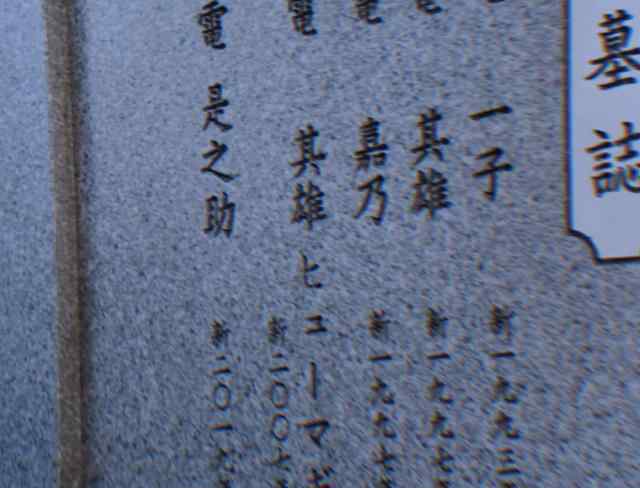 墓誌
一子 新一九九三
其雄 新一九九七
嘉乃 新一九九七
電 其雄ヒューマギ 新二〇〇七
電 是之助 新二〇一七